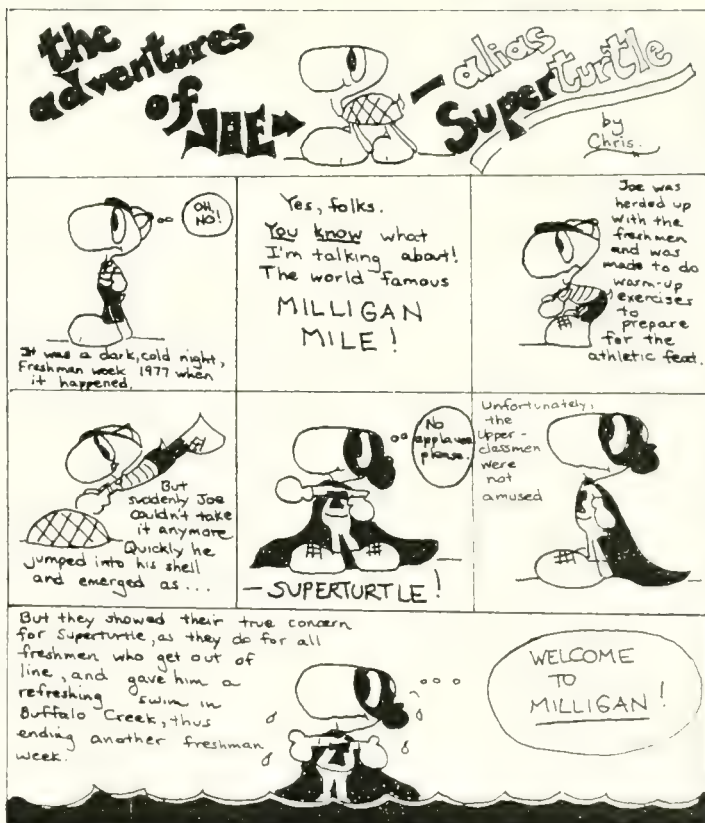 the
adventures
of JOE
— alias
Superturtle
by
Chris.
OH,
NO!
It was a dark, cold night,
Freshman week 1977 when
it happened.
Yes, folks.
You know what
I'm talking about!
The world famous
MILLIGAN
MILE!
Joe was
herded up
with the
freshmen
and was
made to do
warm-up
exercises
to
prepare
for the
athletic feat.
But
suddenly Joe
couldn't take
it anymore
Quickly he
jumped into his shell
and emerged as...
No
applause
please.
— SUPERTURTLE!
Unfortunately,
the
Upper-
classmen
were
not
amused
But they showed their true concern
for Superturtle, as they do for all
freshmen who get out of
line, and gave him a
refreshing swim in
Buffalo Creek, thus
ending another freshman
week.
WELCOME
TO
MILLIGAN!